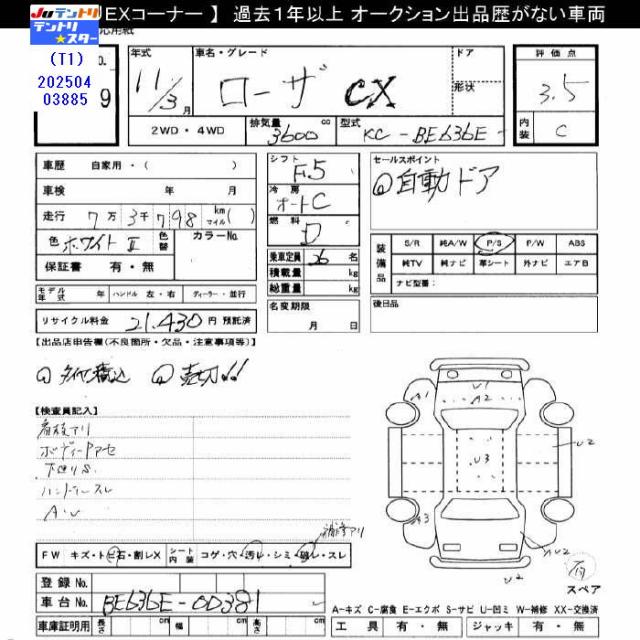 JUテントリ 【EXコーナー 】 過去1年以上 オークション出品歴がない車両
テントリ★スター
(T1)
202504
03885
No.
9
年式
11/3月
車名・グレード
ローザ CX
ドア
形状
評価点
3.5
内装
C
2WD・4WD
排気量
3600 cc
型式
KC-BE636E-
車歴 自家用・( )
車検 年 月
走行 7万3千798 km マイル ( )
色 ホワイトII 色替 カラーNo.
保証書 有・無
モデル年式 年 ハンドル 左・右 ディーラー・並行
リサイクル料金 21.430 円 預託済
シフト
F.5
冷房
オートC
燃料
D
乗車定員 26 名
積載量 kg
総重量 kg
名変期限
月 日
セールスポイント
◎自動ドア
装備品
S/R 純A/W P/S P/W ABS
純TV 純ナビ 革シート 外ナビ エアB
ナビ型番:
後日品
【出品店申告欄(不良箇所・欠品・注意事項等)】
売切!!
【検査員記入】
下回りS
A・U
FW キズ・トビ石・割レX シート内装 コゲ・穴・汚レ・シミ・破レ・スレ
登録No.
車台No. BE636E-00381
車庫証明用 長さ cm 幅 cm 高さ cm
U1
A2
A1
U3
U2
A3
U2
U2
有
スペア
A-キズ C-腐食 E-エクボ S-サビ U-凹ミ W-補修 XX-交換済
工具 有・無 ジャッキ 有・無